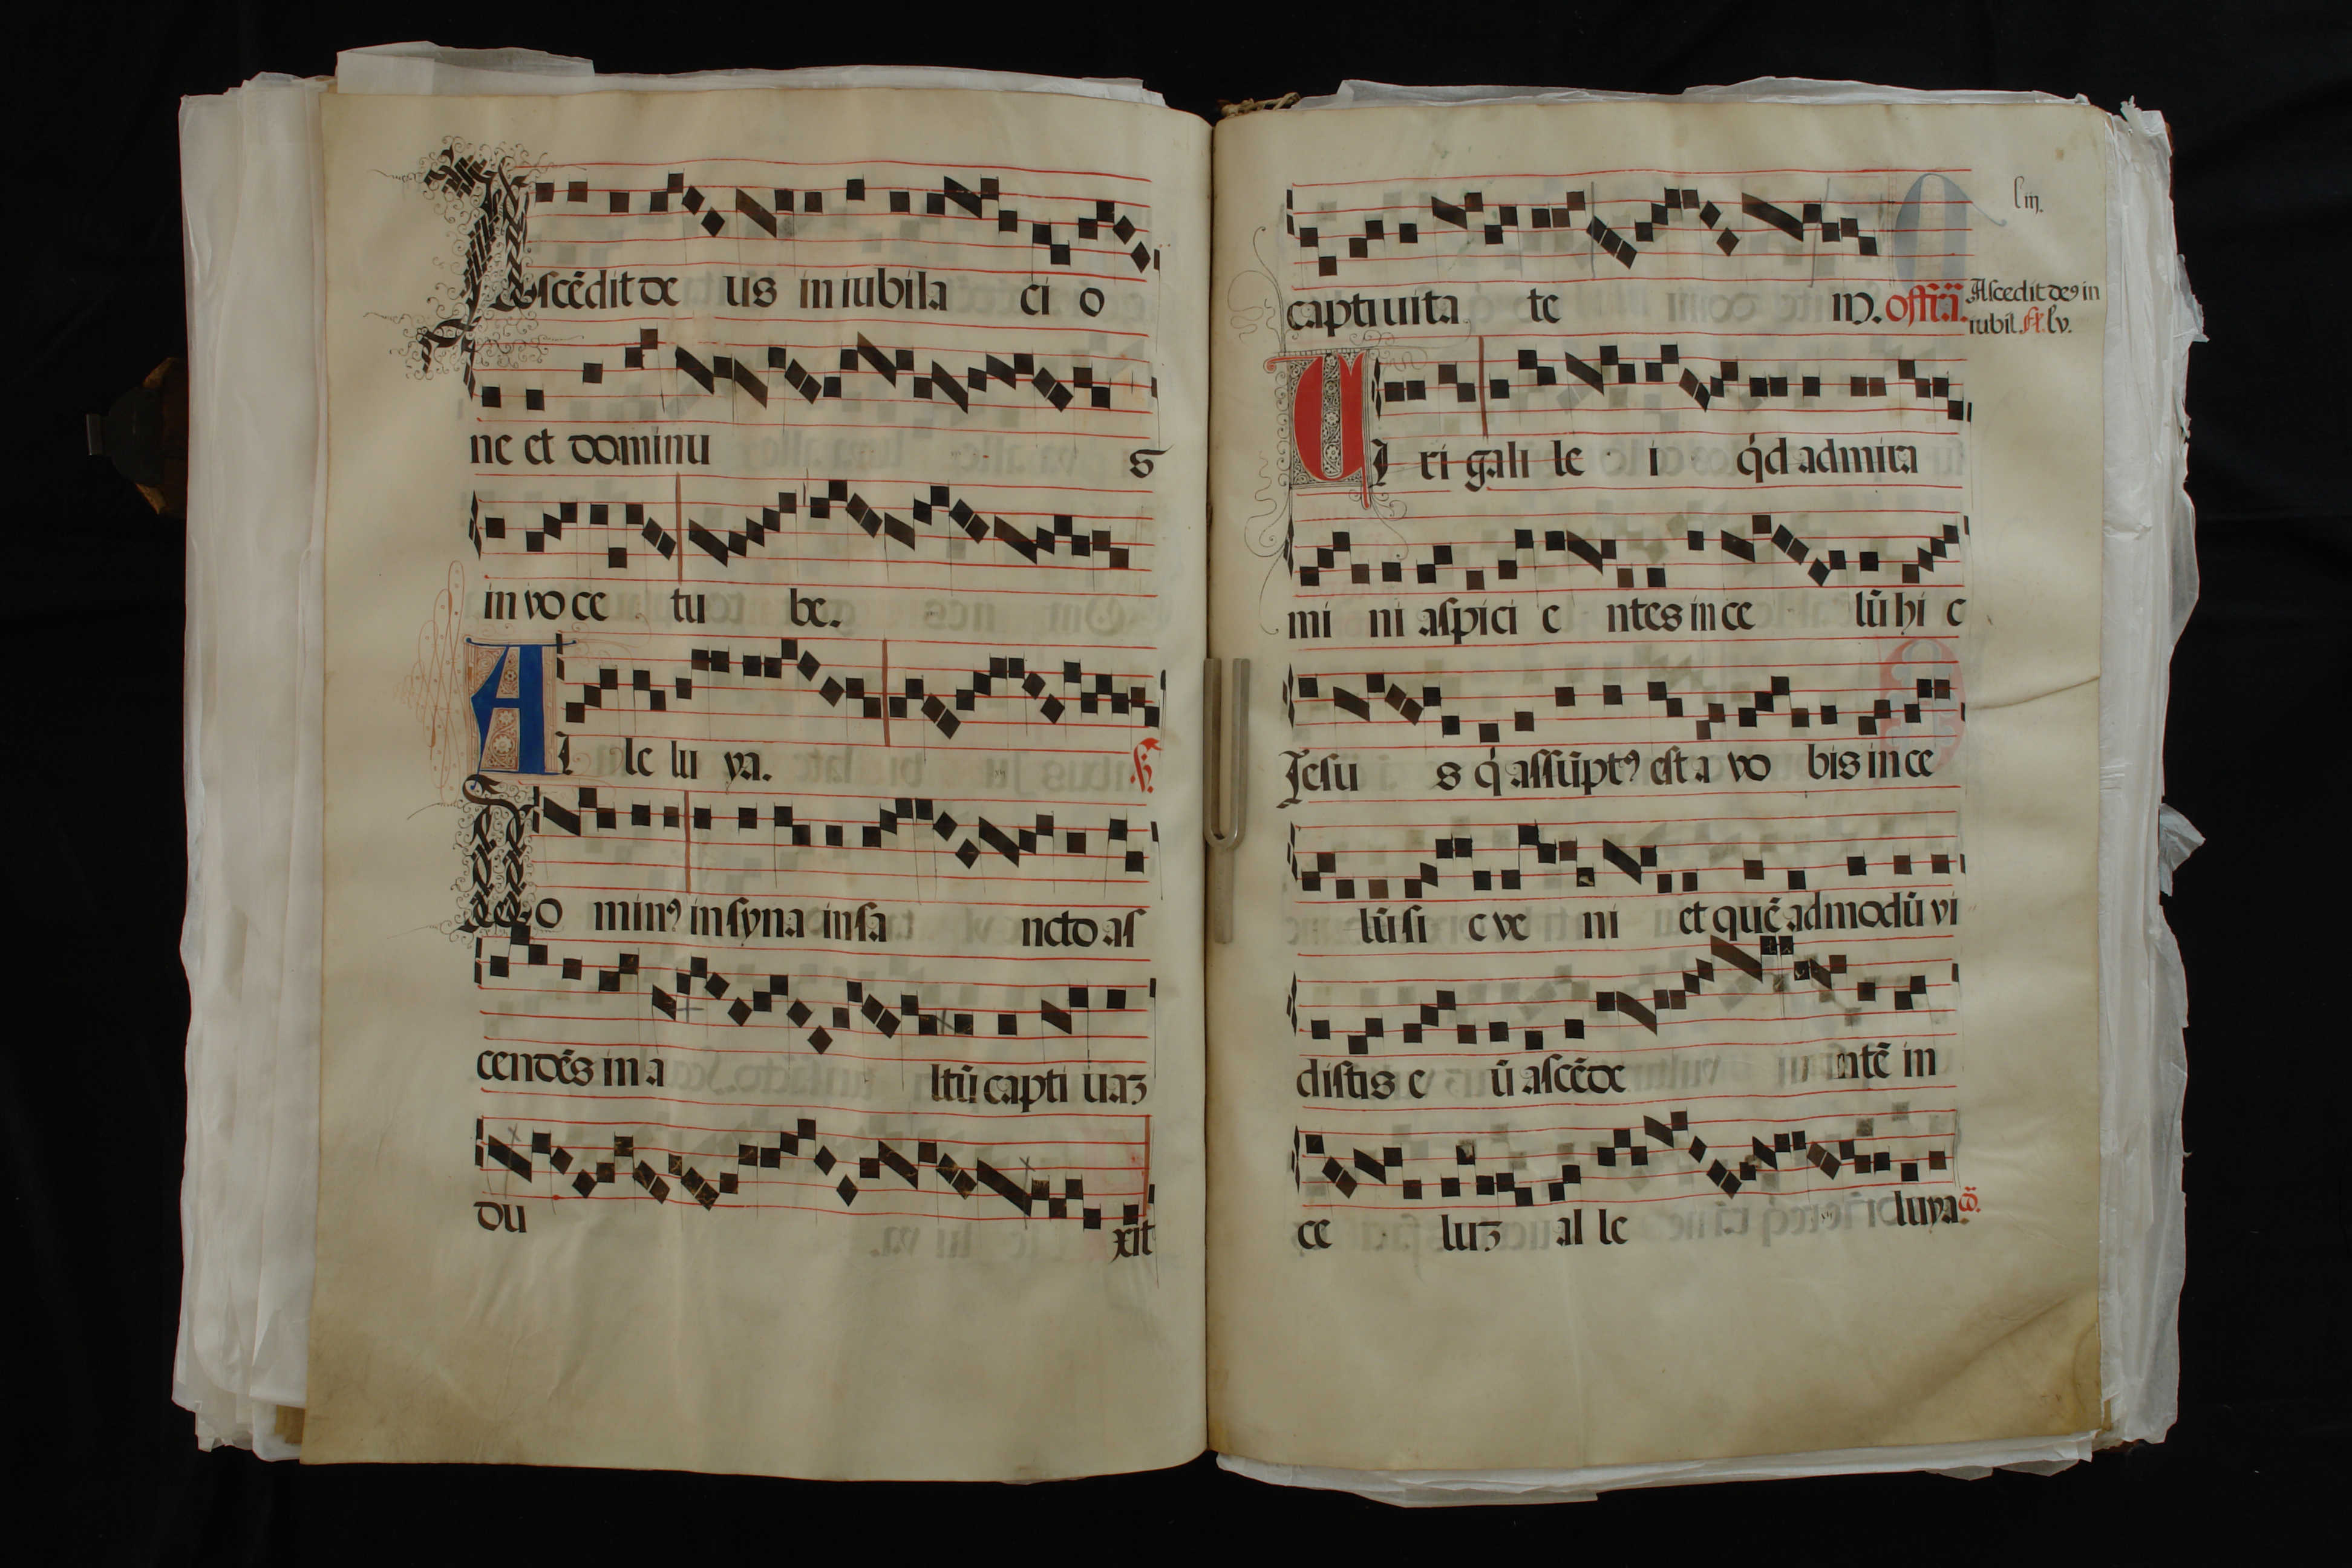 Ascēdit de us in iubila ci o
ne et dominu s
in vo ce tu be.
Al le lu ya. ℣.
Do minꝰ in syna in sa ncto as
cendēs in a ltū capti uaꝫ
du xit
liij.
captiuita te m. offr̄a.
Ascedit deꝰ in
iubil. fx. lv.
Vi ri gali le i q̇d admira
mi ni aspici e ntes in ce lū hi c
Jesu s q̇ assūptꝰ est a vo bis in ce
lū si c ve ni et quē admodū vi
distis e ū ascēde ntē in
ce luꝫ al le luya.